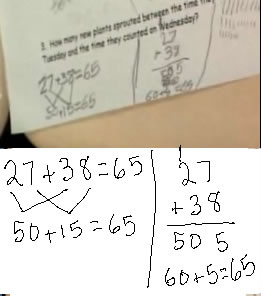 3. How many new plants sprouted between the time the
Tuesday and the time they counted on Wednesday?
27+38=65
50+15=65
27
+38
50 5
60+5=65
27+38=65
50+15=65
27
+38
50 5
60+5=65